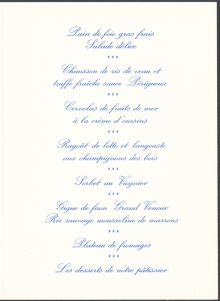 Pain de foie gras frais
Salade délice
***
Chausson de ris de veau et
truffe fraîche sauce Périgueux
***
Cervelas de fruits de mer
à la crème d'oursins
***
Ragoût de lotte et langouste
aux champignons des bois
***
Sorbet au Viognier
***
Gigue de faon Grand Veneur
Riz sauvage mousseline de marrons
***
Plateau de fromages
***
Les desserts de notre pâtissier